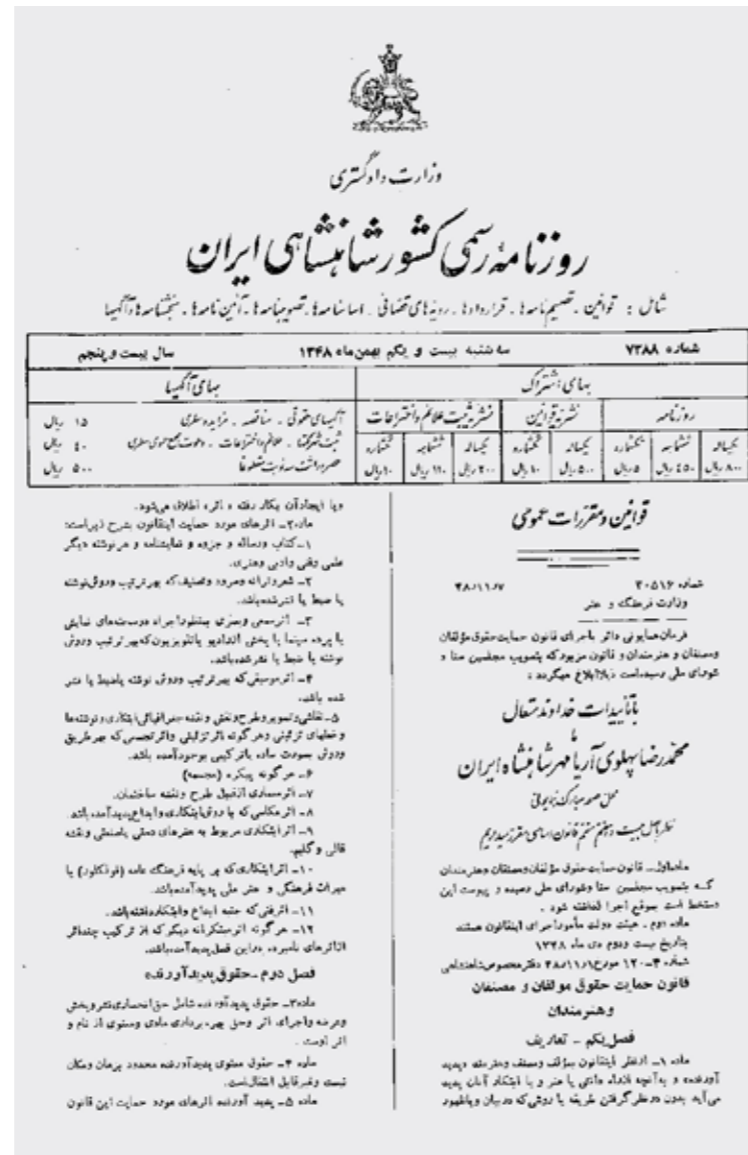 وزارت دادگستری
روزنامه رسمی کشور شاهنشاهی ایران
شامل : قوانین ـ تصمیم نامه ها ـ قراردادها ـ رویه های قضائی ـ اساسنامه ها ـ تصویبنامه ها ـ آئین نامه ها ـ بخشنامه ها و آگهیها
شماره ۷۳۸۸ سه شنبه بیست و یکم بهمن ماه ۱۳۴۸ سال بیست و پنجم
بهای اشتراک
روزنامه نشریه قوانین نشریه ثبت علائم و اختراعات
یکساله ششماهه تکشماره یکساله تکشماره یکساله ششماهه تکشماره
۸۰۰ ریال ۴۵۰ ریال ۵ ریال ۵۰۰ ریال ۱۰ ریال ۲۰۰ ریال ۱۱۰ ریال ۱۰ ریال
بهای آگهیها
آگهیهای حقوقی ـ مناقصه ـ مزایده سطری ۱۵ ریال
ثبت شرکتها ـ علائم و اختراعات ـ دعوت مجمع عمومی سطری ۴۰ ریال
حصر وراثت سه نوبت مقطوعا ۵۰۰ ریال
قوانین و مقررات عمومی
شماره ۲۰۵۱۶ ۴۸/۱۱/۷
وزارت فرهنگ و هنر
فرمان همایونی دائر باجرای قانون حمایت حقوق مؤلفان
ومصنفان و هنرمندان و قانون مزبور که بتصویب مجلسین سنا و
شورای ملی رسیده است ذیلا ابلاغ میگردد :
با تأییدات خداوند متعال
ما
محمدرضا پهلوی آریامهر شاهنشاه ایران
محل صحه مبارک همایونی
نظر باصل بیست و هفتم متمم قانون اساسی مقرر میداریم
ماده اول ـ قانون حمایت حقوق مؤلفان ومصنفان وهنرمندان
که بتصویب مجلسین سنا وشورای ملی رسیده و پیوست این
دستخط است بموقع اجرا گذاشته شود .
ماده دوم ـ هیئت دولت مأمور اجرای اینقانون هستند
بتاریخ بیست ودوم دی ماه ۱۳۴۸
شماره ۴ـ۱۲۰ مورخ ۴۸/۱۱/۱ دفتر مخصوص شاهنشاهی
قانون حمایت حقوق مولفان و مصنفان
و هنرمندان
فصل یکم ـ تعاریف
ماده ۱ـ ازنظر اینقانون بمؤلف ومصنف وهنرمند «پدید
آورنده» و بآنچه ازراه دانش یا هنر و یا ابتکار آنان پدید
می‌آید بدون درنظر گرفتن طریقه یا روشی که دربیان ویاظهور
ویا ایجادآن بکار رفته «اثر» اطلاق میشود.
ماده۲ـ اثرهای مورد حمایت اینقانون بشرح زیراست:
۱ـ کتاب ورساله و جزوه و نمایشنامه و هرنوشته دیگر
علمی وفنی وادبی وهنری.
۲ـ شعر وترانه وسرود وتصنیف که بهر ترتیب وروش نوشته
یا ضبط یا نشرشده‌باشد.
۳ـ اثرسمعی وبصری بمنظوراجراء درصحنه‌های نمایش
یا پرده سینما یا پخش ازرادیو یاتلویزیون که بهر ترتیب وروش
نوشته یا ضبط یا نشرشده‌باشد.
۴ـ اثرموسیقی که بهر ترتیب وروش نوشته یاضبط یا نشر
شده باشد.
۵ـ نقاشی وتصویر وطرح ونقش و نقشه جغرافیائی ابتکاری و نوشته‌ها
وخطهای تزئینی وهرگونه اثر تزئینی واثرتجسمی که بهرطریق
وروش بصورت ساده یاترکیبی بوجودآمده باشد.
۶ـ هرگونه پیکره (مجسمه)
۷ـ اثرمعماری ازقبیل طرح ونقشه ساختمان.
۸ـ اثر عکاسی که با روش ابتکاری وابداع پدیدآمده باشد.
۹ـ اثر ابتکاری مربوط به هنرهای دستی یاصنعتی ونقشه
قالی و گلیم.
۱۰ـ اثر ابتکاری که بر پایه فرهنگ عامه (فولکلور) یا
میراث فرهنگی و هنر ملی پدیدآمده‌باشد.
۱۱ـ اثر فنی که جنبه ابداع وابتکارداشته‌باشد.
۱۲ـ هرگونه اثر مبتکرانه دیگر که از ترکیب چنداثر
ازاثرهای نامبرده دراین فصل پدیدآمده‌باشد.
فصل دوم ـ حقوق پدیدآورنده
ماده۳ـ حقوق پدیدآورنده شامل حق انحصاری نشر وپخش
وعرضه واجرای اثر وحق بهره برداری مادی ومعنوی از نام و
اثر اوست .
ماده ۴ـ حقوق معنوی پدیدآورنده محدود بزمان ومکان
نیست وغیرقابل انتقال است.
ماده ۵ـ پدید آورنده اثرهای مورد حمایت این قانون